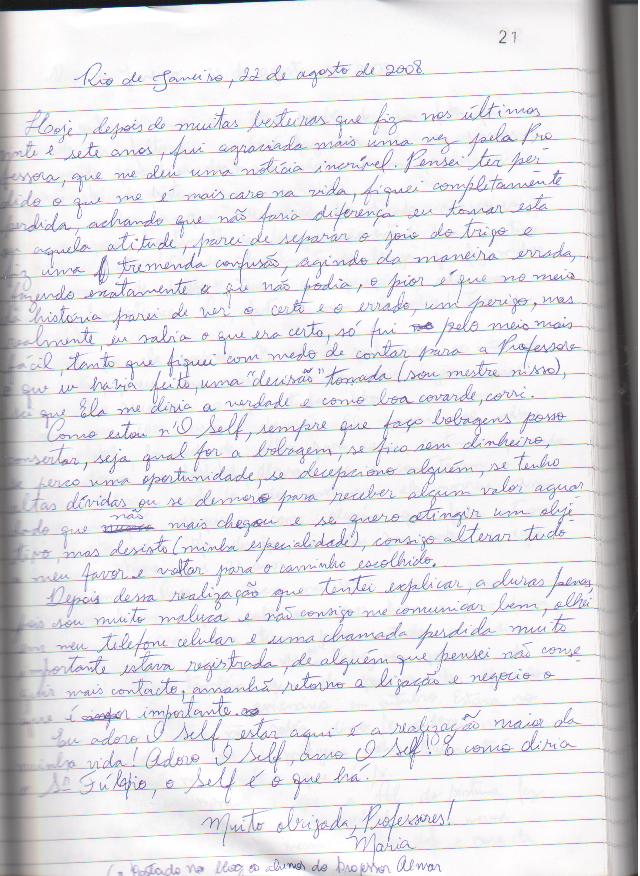 21
Rio de Janeiro, 22 de agosto de 2008.
Hoje, depois de muitas besteiras que fiz nos últimos
vinte e sete anos, fui agraciada mais uma vez pela Pro
fessora, que me deu uma notícia incrível. Pensei ter per-
dido o que me é mais caro na vida, fiquei completamente
perdida, achando que não faria diferença eu tomar esta
ou aquela atitude, parei de separar o joio do trigo e
fiz uma tremenda confusão, agindo da maneira errada,
fazendo exatamente o que não podia, o pior é que no meio
da história parei de ver o certo e o errado, um perigo, mas
realmente, eu sabia o que era certo, só fui pelo meio mais
fácil, tanto que fiquei com medo de contar para a Professora
o que eu havia feito, uma "decisão" tomada (sou mestre nisso),
sei que Ela me diria a verdade e como boa covarde, corri.
Como estou n'O Self, sempre que faço bobagens posso
consertar, seja qual for a bobagem, se fico sem dinheiro,
se perco uma oportunidade, se decepciono alguém, se tenho
altas dívidas ou se demoro para receber algum valor aguar
dado que não mais chegou e se quero atingir um obje-
tivo, mas desisto (minha especialidade), consigo alterar tudo
a meu favor e voltar para o caminho escolhido.
Depois dessa realização que tentei explicar, a duras penas,
pois sou muito maluca e não consigo me comunicar bem, olhei
em meu telefone celular e uma chamada perdida muito
importante estava registrada, de alguém que pensei não conse
guir mais contacto, amanhã retorno a ligação e negocio o
que é importante.
Eu adoro O Self, estar aqui é a realização maior da
minha vida! Adoro O Self, amo O Self! E como diria
o Sr. Fúlvio, o Self é o que há.
Muito obrigada, Professores!
Maria
Postado no blog os alunos do Professor